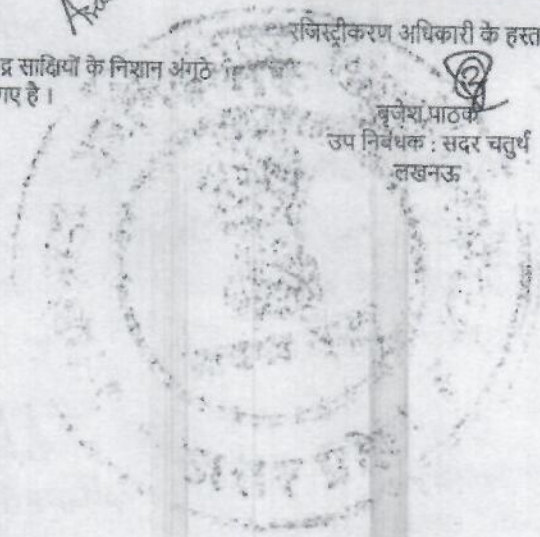 रजिस्ट्रीकरण अधिकारी के हस्त
द्र साक्षियों के निशान अंगूठे
गए है ।
बृजेश पाठक
उप निबंधक : सदर चतुर्थ
लखनऊ